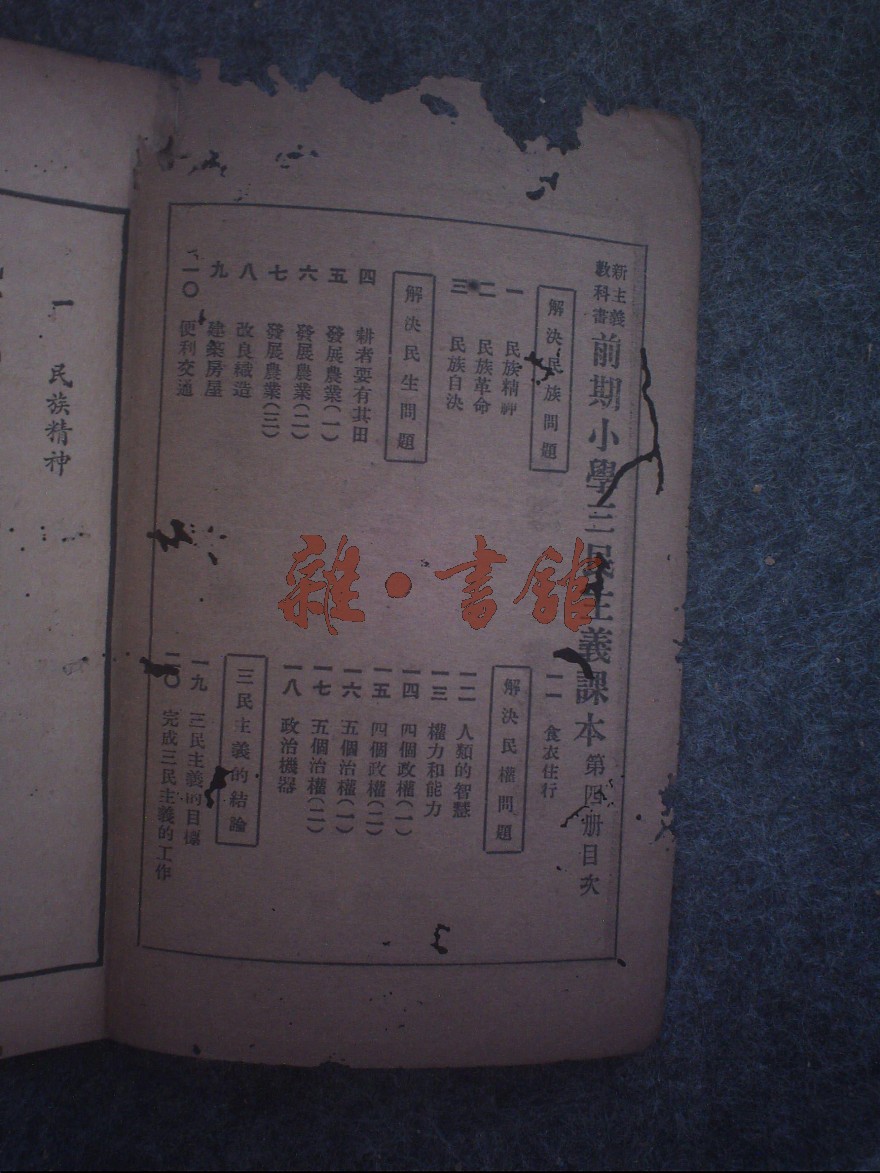 新主義
教科書
前期小學三民主義課本第四册目次
解決民族問題
一 民族精神
二 民族革命
三 民族自決
解決民生問題
四 耕者要有其田
五 發展農業(一)
六 發展農業(二)
七 發展農業(三)
八 改良織造
九 建築房屋
一〇 便利交通
一一 食衣住行
解決民權問題
一二 人類的智慧
一三 權力和能力
一四 四個政權(一)
一五 四個政權(二)
一六 五個治權(一)
一七 五個治權(二)
一八 政治機器
三民主義的結論
一九 三民主義的目標
二〇 完成三民主義的工作
一 民族精神
雜·書館